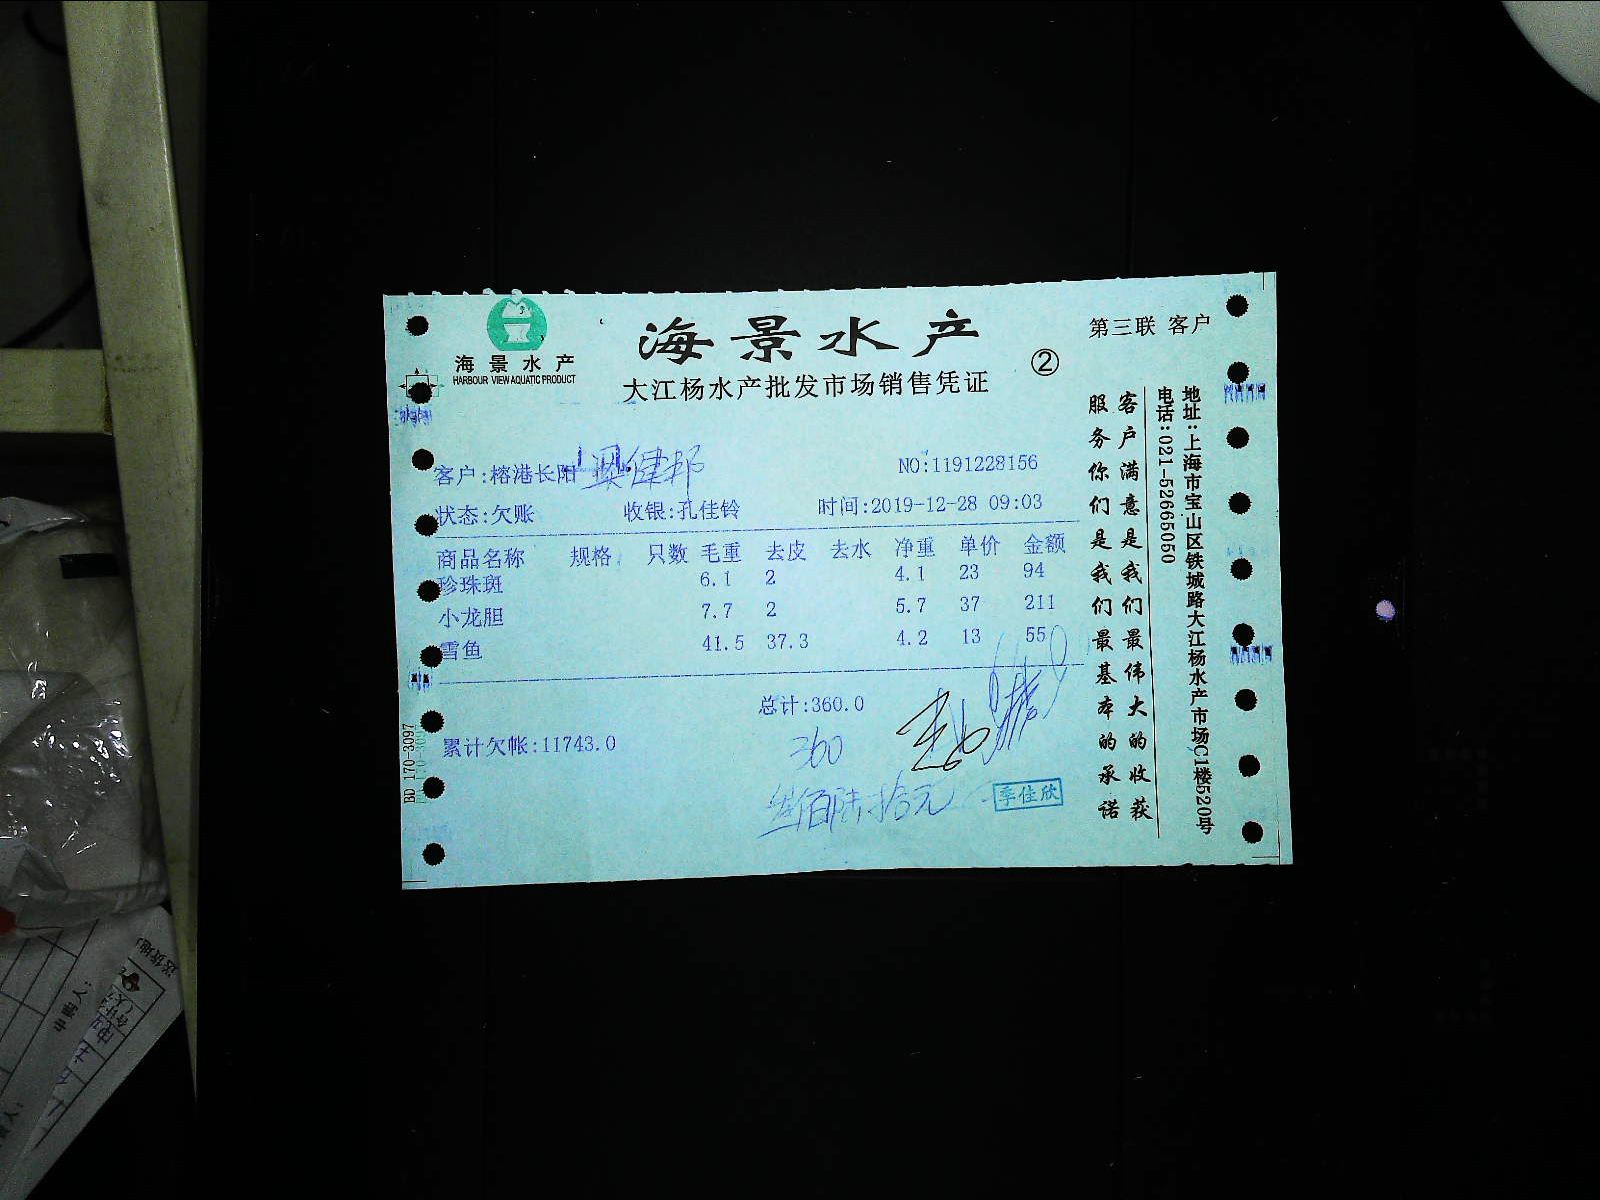 海景水产
HARBOUR VIEW AQUATIC PRODUCT
海景水产
大江杨水产批发市场销售凭证
②
第三联 客户
客户:榕港长阳
NO:1191228156
状态:欠账 收银:孔佳铃 时间:2019-12-28 09:03
商品名称 规格 只数 毛重 去皮 去水 净重 单价 金额
珍珠斑 6.1 2 4.1 23 94
小龙胆 7.7 2 5.7 37 211
雪鱼 41.5 37.3 4.2 13 55
总计:360.0
累计欠帐:11743.0
360
叁佰陆拾元
李佳欣
地址:上海市宝山区铁城路大江杨水产市场C1楼520号
电话:021-52665050
客户满意是我们最伟大的收获
服务你们是我们最基本的承诺
BD 170-3097
送货地
申购人: